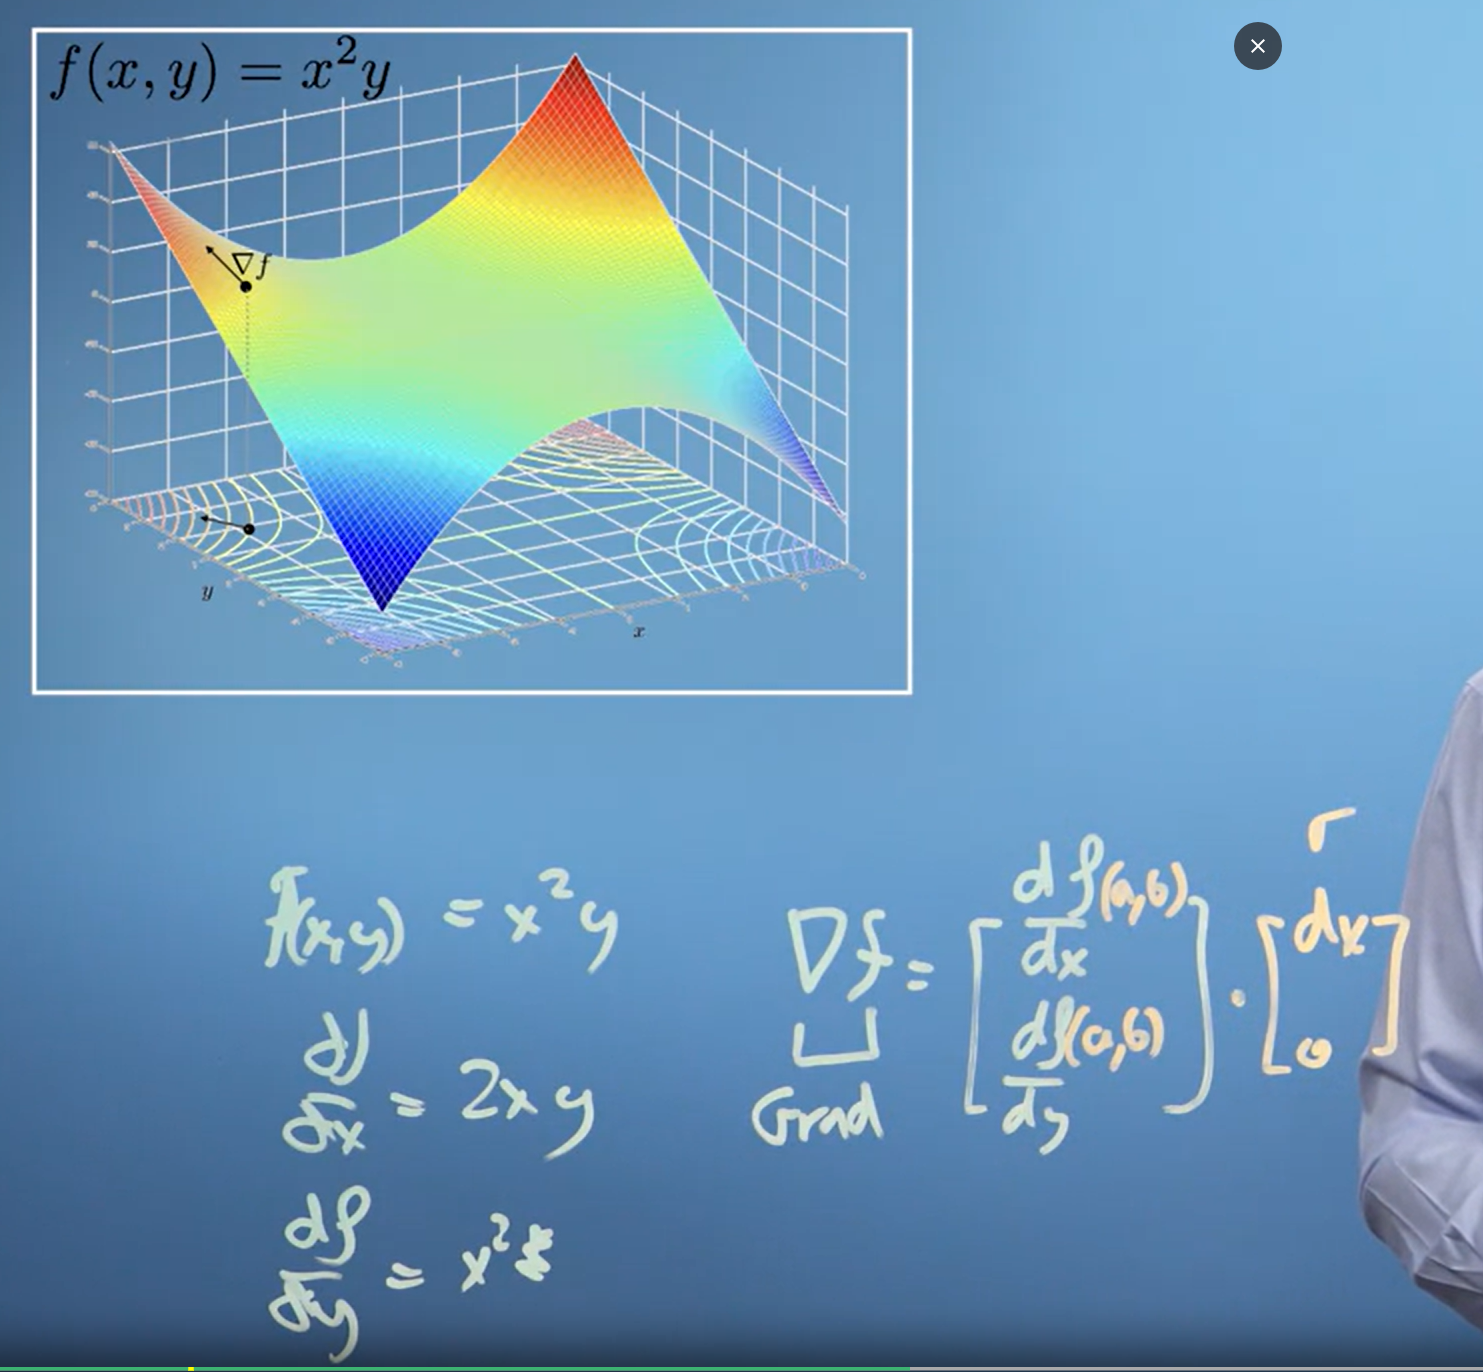 f(x, y) = x²y
∇f
y
x
f(x,y) = x²y
df/dx = 2xy
df/dy = x²
∇f = [df/dx (a,b), df/dy (a,b)] · [dx, 0]
Grad
r